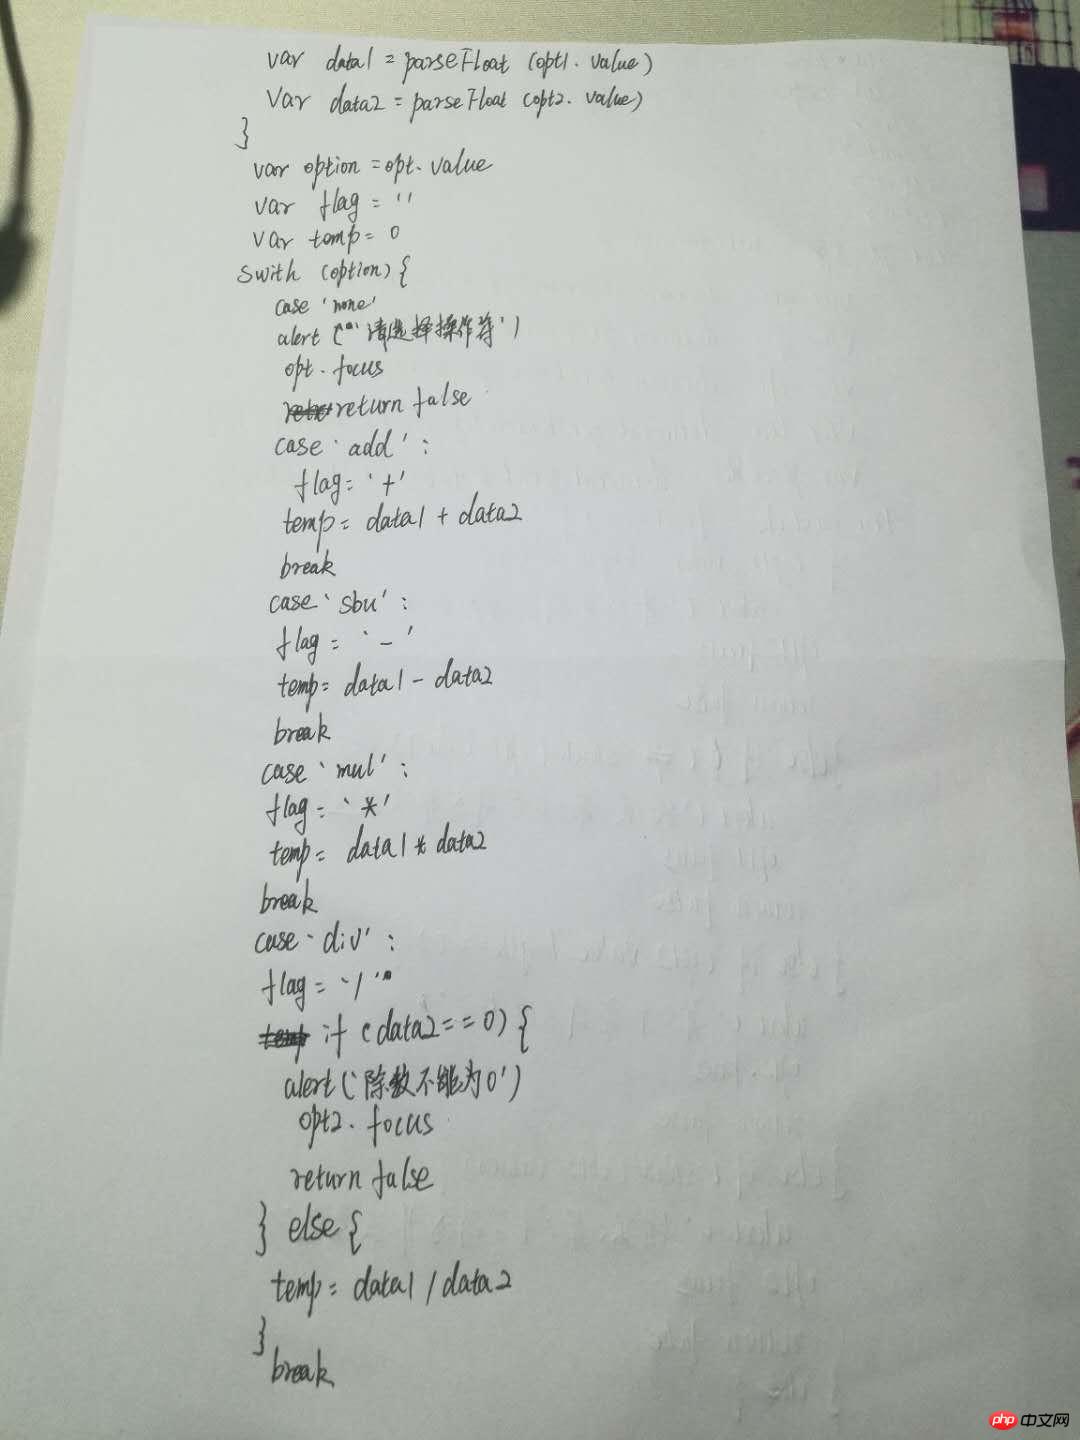 var data1 = parseFloat (opt1. value)
var data2 = parseFloat (opt2. value)
}
var option = opt. value
var flag = ''
var temp = 0
swith (option) {
case 'none'
alert ('请选择操作符')
opt. focus
return false
case 'add' :
flag = '+'
temp = data1 + data2
break
case 'sbu' :
flag = '-'
temp = data1 - data2
break
case 'mul' :
flag = '*'
temp = data1 * data2
break
case 'div' :
flag = '/'
if (data2 == 0) {
alert ('除数不能为0')
opt2. focus
return false
} else {
temp = data1 / data2
}
break
php 中文网